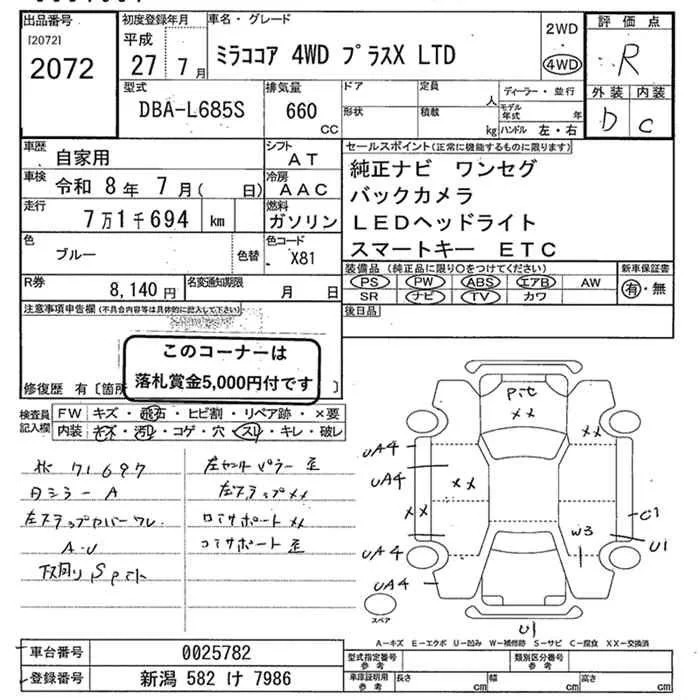 出品番号 初度登録年月 車名・グレード 評価点
[2072] 平成 2WD
2072 27年 7月 ミラココア 4WD プラスX LTD ・ R
4WD
型式 排気量 ドア 定員 人 ディーラー・並行 外装 内装
DBA-L685S 660 CC 形状 積載 kg モデル年式 年 D C
ハンドル 左・右
車歴 自家用 シフト AT セールスポイント(正常に機能するものに限ります)
車検 令和 8年 7月( 日) 冷房 AAC 純正ナビ ワンセグ
走行 7万1千694 km 燃料 ガソリン バックカメラ
色 ブルー 色替 色コード X81 LEDヘッドライト
スマートキー ETC
R券 8,140円 名変通知期限 月 日 装備品(純正品に限り○をつけてください) 新車保証書
PS PW ABS エアB AW 有・無
SR ナビ TV カワ
注意事項申告欄(不具合内容等は具体的に記入して下さい) 後日品
このコーナーは
落札賞金5,000円付です
修復歴 有〔箇所
検査員記入欄 FW キズ・飛石・ヒビ割・リペア跡・×要
内装 キズ・汚れ・コゲ・穴・スレ・キレ・破レ
71697
左センターピラー歪
A
左ステップ××
左ステップカバーワレ
コアサポート××
A・U
コアサポート歪
下廻り
××
××
UA4
UA4
××
××
C1
W3
UA4
U1
UA4
スペア
U1
A-キズ E-エクボ U-凹み W-補修跡 S-サビ C-腐食 XX-交換済
車台番号 0025782 型式指定番号 参考 類別区分番号 参考
登録番号 新潟 582 け 7986 車庫証明用 参考 長さ cm 幅 cm 高さ cm